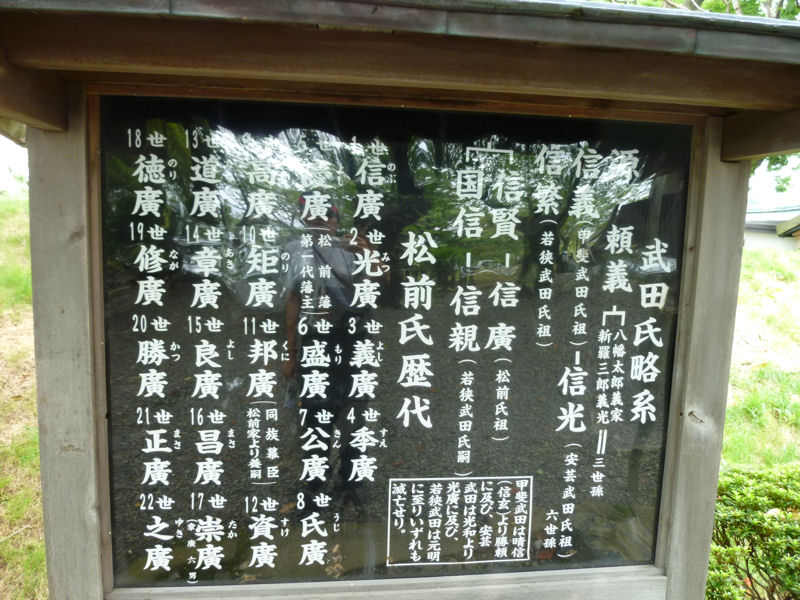 武田氏略系
源 − 頼義
八幡太郎義家
新羅三郎義光 = 三世孫
信義(甲斐武田氏祖) − 信光(安芸武田氏祖) 六世孫
信繁(若狭武田氏祖)
信賢 − 信廣(松前氏祖)
国信 − 信親(若狭武田氏嗣)
甲斐武田は晴信
(信玄)より勝頼
に及び、安芸
武田は光和より
光廣に及び、
若狭武田は元明
に至りいずれも
滅亡せり。
松前氏歴代
1世 信廣 のぶ
2世 光廣 みつ
3世 義廣 よし
4世 季廣 すえ
5世 慶廣 (松前藩第一代藩主)
6世 盛廣 もり
7世 公廣 きん
8世 氏廣 うじ
高廣
10世 矩廣 のり
11世 邦廣 くに (同族幕臣松前家より養嗣)
12世 資廣 すけ
13世 道廣
14世 章廣 あき
15世 良廣 よし
16世 昌廣 まさ
17世 崇廣 たか (章廣六男)
18世 徳廣 のり
19世 修廣 なが
20世 勝廣 かつ
21世 正廣 まさ
22世 之廣 ゆき